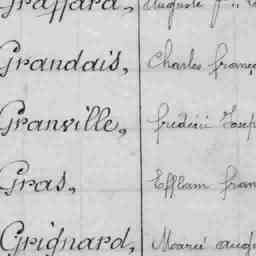 Graffard, Auguste
Grandais, Charles franç
Granville, frédéric Josep
Gras, Efflam fran
Grignard, Marie augu